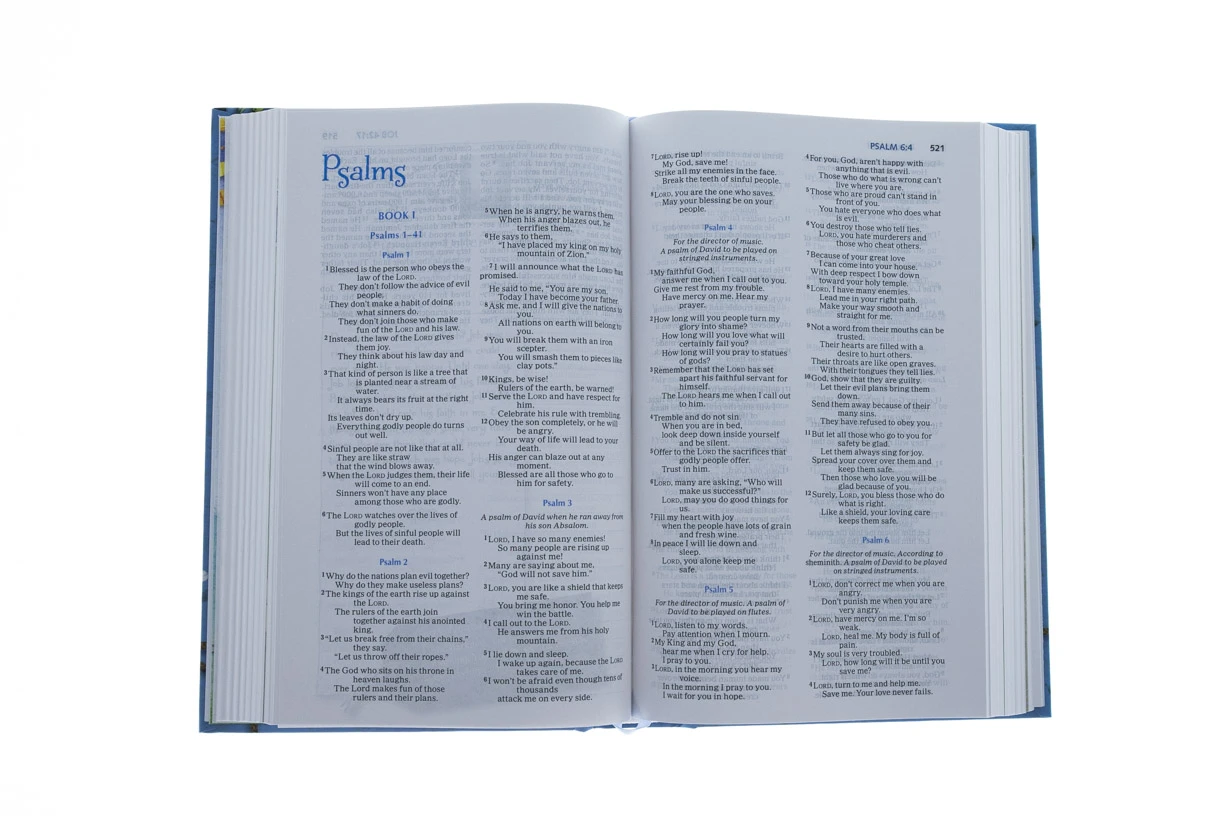 Psalms
BOOK I
Psalms 1–41
Psalm 1
1Blessed is the person who obeys the
law of the LORD.
They don't follow the advice of evil
people.
They don't make a habit of doing
what sinners do.
They don't join those who make
fun of the LORD and his law.
2Instead, the law of the LORD gives
them joy.
They think about his law day and
night.
3That kind of person is like a tree that
is planted near a stream of
water.
It always bears its fruit at the right
time.
Its leaves don't dry up.
Everything godly people do turns
out well.
4Sinful people are not like that at all.
They are like straw
that the wind blows away.
5When the LORD judges them, their life
will come to an end.
Sinners won't have any place
among those who are godly.
6The LORD watches over the lives of
godly people.
But the lives of sinful people will
lead to their death.
Psalm 2
1Why do the nations plan evil together?
Why do they make useless plans?
2The kings of the earth rise up against
the LORD.
The rulers of the earth join
together against his anointed
king.
3"Let us break free from their chains,"
they say.
"Let us throw off their ropes."
4The God who sits on his throne in
heaven laughs.
The Lord makes fun of those
rulers and their plans.
5When he is angry, he warns them.
When his anger blazes out, he
terrifies them.
6He says to them,
"I have placed my king on my holy
mountain of Zion."
7I will announce what the LORD has
promised.
He said to me, "You are my son.
Today I have become your father.
8Ask me, and I will give the nations to
you.
All nations on earth will belong to
you.
9You will break them with an iron
scepter.
You will smash them to pieces like
clay pots."
10Kings, be wise!
Rulers of the earth, be warned!
11Serve the LORD and have respect for
him.
Celebrate his rule with trembling.
12Obey the son completely, or he will
be angry.
Your way of life will lead to your
death.
His anger can blaze out at any
moment.
Blessed are all those who go to
him for safety.
Psalm 3
A psalm of David when he ran away from
his son Absalom.
1LORD, I have so many enemies!
So many people are rising up
against me!
2Many are saying about me,
"God will not save him."
3LORD, you are like a shield that keeps
me safe.
You bring me honor. You help me
win the battle.
4I call out to the LORD.
He answers me from his holy
mountain.
5I lie down and sleep.
I wake up again, because the LORD
takes care of me.
6I won't be afraid even though tens of
thousands
attack me on every side.
PSALM 6:4 521
7LORD, rise up!
My God, save me!
Strike all my enemies in the face.
Break the teeth of sinful people.
8LORD, you are the one who saves.
May your blessing be on your
people.
Psalm 4
For the director of music.
A psalm of David to be played on
stringed instruments.
1My faithful God,
answer me when I call out to you.
Give me rest from my trouble.
Have mercy on me. Hear my
prayer.
2How long will you people turn my
glory into shame?
How long will you love what will
certainly fail you?
How long will you pray to statues
of gods?
3Remember that the LORD has set
apart his faithful servant for
himself.
The LORD hears me when I call out
to him.
4Tremble and do not sin.
When you are in bed,
look deep down inside yourself
and be silent.
5Offer to the LORD the sacrifices that
godly people offer.
Trust in him.
6LORD, many are asking, "Who will
make us successful?"
LORD, may you do good things for
us.
7Fill my heart with joy
when the people have lots of grain
and fresh wine.
8In peace I will lie down and
sleep.
LORD, you alone keep me
safe.
Psalm 5
For the director of music. A psalm of
David to be played on flutes.
1LORD, listen to my words.
Pay attention when I mourn.
2My King and my God,
hear me when I cry for help.
I pray to you.
3LORD, in the morning you hear my
voice.
In the morning I pray to you.
I wait for you in hope.
4For you, God, aren't happy with
anything that is evil.
Those who do what is wrong can't
live where you are.
5Those who are proud can't stand in
front of you.
You hate everyone who does what
is evil.
6You destroy those who tell lies.
LORD, you hate murderers and
those who cheat others.
7Because of your great love
I can come into your house.
With deep respect I bow down
toward your holy temple.
8LORD, I have many enemies.
Lead me in your right path.
Make your way smooth and
straight for me.
9Not a word from their mouths can be
trusted.
Their hearts are filled with a
desire to hurt others.
Their throats are like open graves.
With their tongues they tell lies.
10God, show that they are guilty.
Let their evil plans bring them
down.
Send them away because of their
many sins.
They have refused to obey you.
11But let all those who go to you for
safety be glad.
Let them always sing for joy.
Spread your cover over them and
keep them safe.
Then those who love you will be
glad because of you.
12Surely, LORD, you bless those who do
what is right.
Like a shield, your loving care
keeps them safe.
Psalm 6
For the director of music. According to
sheminith. A psalm of David to be played
on stringed instruments.
1LORD, don't correct me when you are
angry.
Don't punish me when you are
very angry.
2LORD, have mercy on me. I'm so
weak.
LORD, heal me. My body is full of
pain.
3My soul is very troubled.
LORD, how long will it be until you
save me?
4LORD, turn to me and help me.
Save me. Your love never fails.